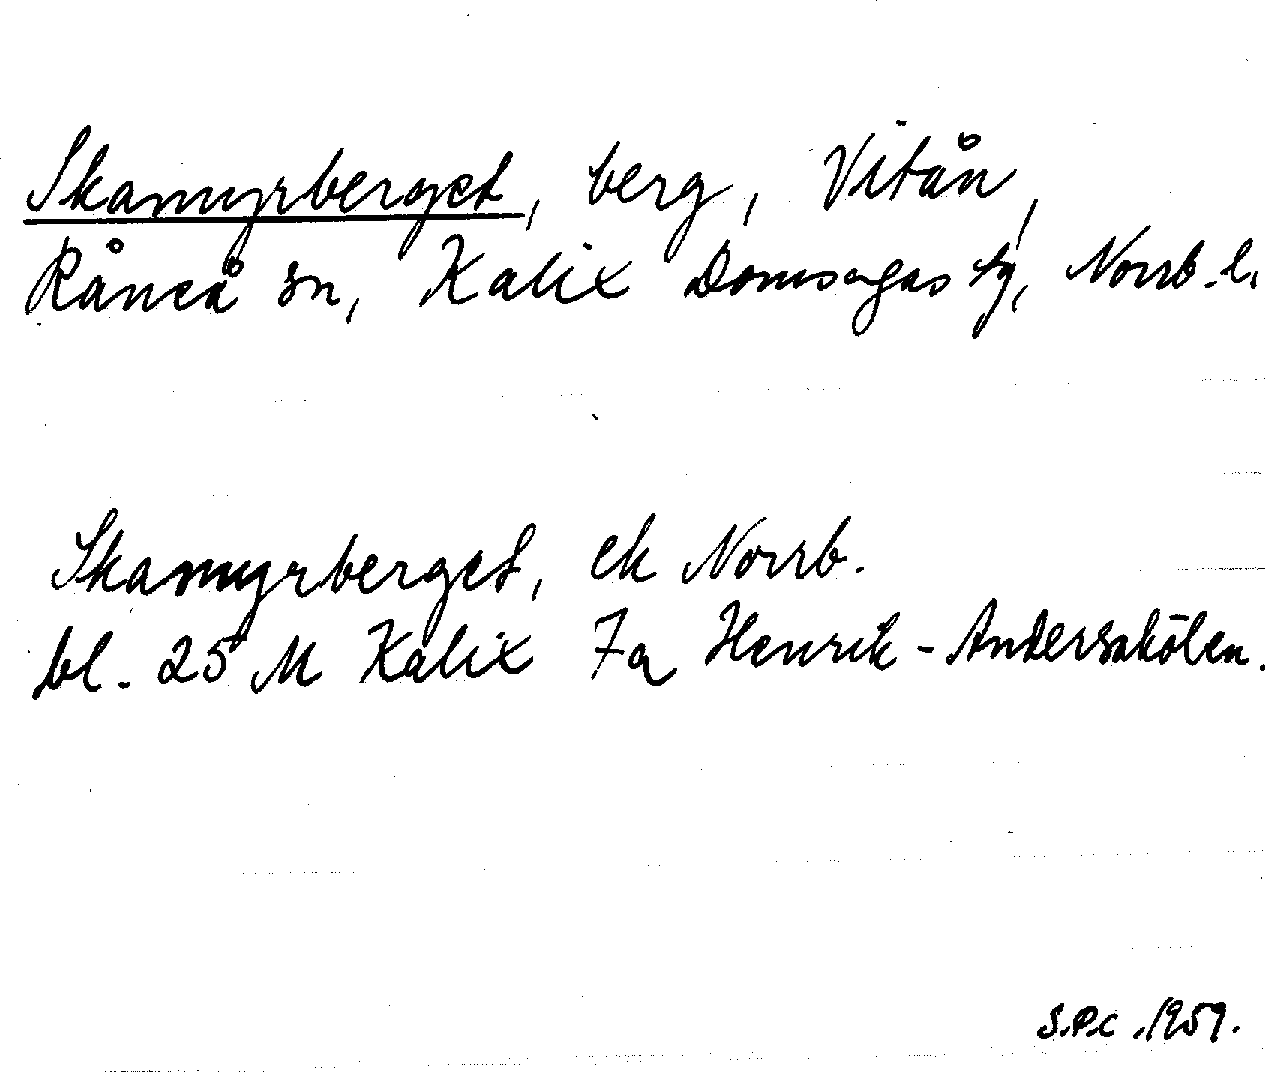 Skamyrberget, berg, Vitån,
Råneå sn, Kalix Domsagas tg, Norrb. l.
Skamyrberget, ek Norrb.
bl. 25 M Kalix 7a Henrik-Anderskölen.
S.P.C. 1959.